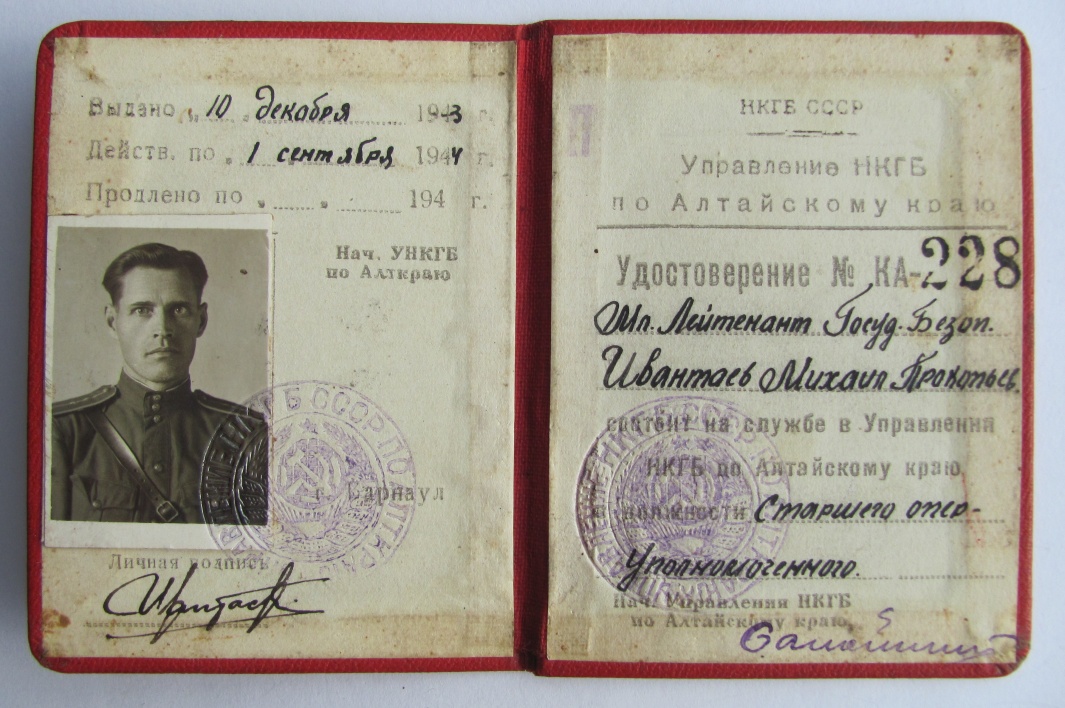 Выдано „ 10 „ декабря 1943 г.
Действ. по „ 1 сентября 1944 г.
Продлено по „ „ 194 г.
Нач. УНКГБ
по Алткраю
г. Барнаул
Личная подпись
НКГБ СССР
Управление НКГБ
по Алтайскому краю
Удостоверение № КА-228
Мл. Лейтенант Госуд. Безоп.
Ивантаев Михаил Прокопьев.
состоит на службе в Управлении
НКГБ по Алтайскому краю
в должности Старшего опер-
уполномоченного.
Нач. Управления НКГБ
по Алтайскому краю